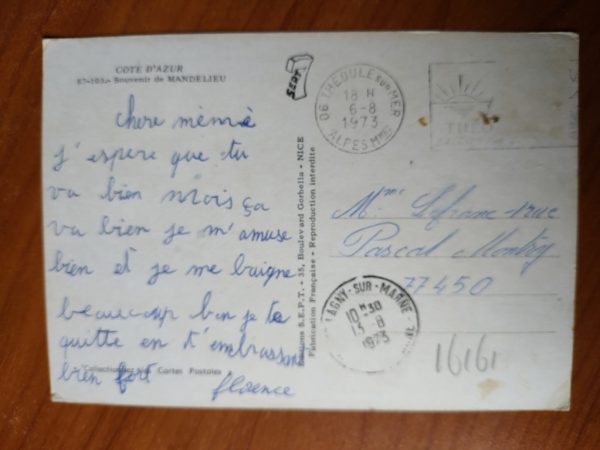 COTE D'AZUR
87-103.- Souvenir de MANDELIEU
chere mémé
j'espere que tu
va bien mois ça
va bien je m'amuse
bien et je me baigne
beaucoup bon je te
quitte en t'embrassant
bien fort
florence
Collectionnez nos Cartes Postales
Editions S.E.P.T. - 35, Boulevard Gorbella - NICE
Fabrication Française - Reproduction interdite
SEPT
06 THEOULE SUR MER
18 H
6-8
1973
ALPES Mmes
THEO
Mme Lefranc rue
Pascal
77450
LAGNY-SUR-MARNE
10 H 30
13-8
1973
16161